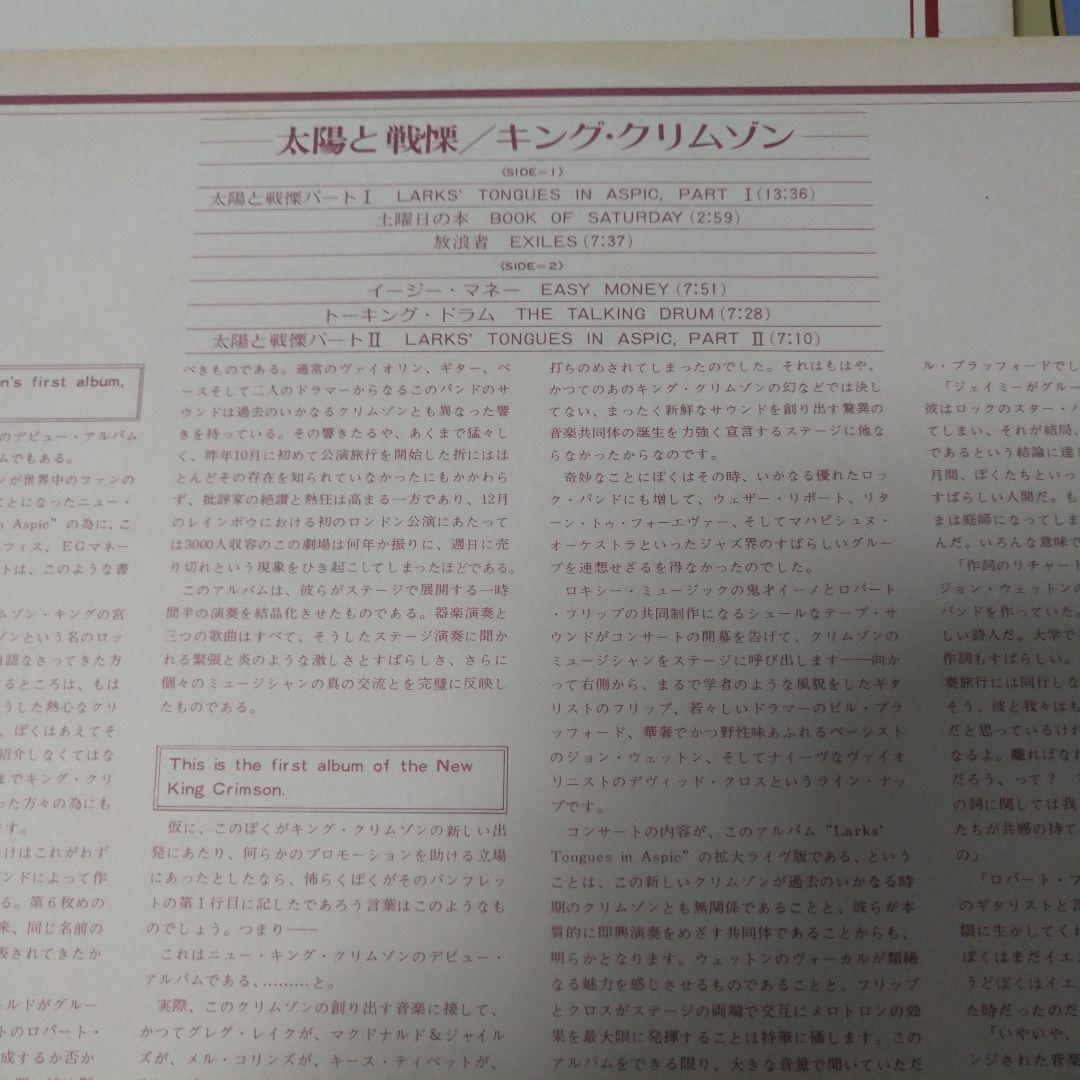 太陽と戦慄／キング・クリムゾン
〈SIDE＝1〉
太陽と戦慄パートⅠ LARKS' TONGUES IN ASPIC, PART Ⅰ(13:36)
土曜日の本 BOOK OF SATURDAY (2:59)
放浪者 EXILES (7:37)
〈SIDE＝2〉
イージー・マネー EASY MONEY (7:51)
トーキング・ドラム THE TALKING DRUM (7:28)
太陽と戦慄パートⅡ LARKS' TONGUES IN ASPIC, PART Ⅱ (7:10)
n's first album,
のデビュー・アルバム
ムでもある。
ンが世界中のファンの
ことになったニュー・
n Aspic”の為に、こ
フィス、EGマネー
トは、このような書
ムゾン・キングの宮
ゾンという名のロッ
認なさってきた方
るところは、もは
うした熱心なクリ
、ぼくはあえてそ
紹介しなくてはな
までキング・クリ
った方々の為にも
ます。
けはこれがわず
ンドによって作
る。第６枚めの
来、同じ名前の
表されてきたか
ルドがグルー
トのロバート・
成するか否か
べきものである。通常のヴァイオリン、ギター、ベ
ースそして二人のドラマーからなるこのバンドのサ
ウンドは過去のいかなるクリムゾンとも異なった響
きを持っている。その響きたるや、あくまで猛々し
く、昨年10月に初めて公演旅行を開始した折にはほ
とんどその存在を知られていなかったにもかかわら
ず、批評家の絶讃と熱狂は高まる一方であり、12月
のレインボウにおける初のロンドン公演にあたって
は3000人収容のこの劇場は何年か振りに、週日に売
り切れという現象をひき起こしてしまったほどである。
このアルバムは、彼らがステージで展開する一時
間半の演奏を結晶化させたものである。器楽演奏と
三つの歌曲はすべて、そうしたステージ演奏に聞か
れる緊張と炎のような激しさとすばらしさ、さらに
個々のミュージシャンの真の交流とを完璧に反映し
たものである。
This is the first album of the New
King Crimson.
仮に、このぼくがキング・クリムゾンの新しい出
発にあたり、何らかのプロモーションを助ける立場
にあったとしたなら、怖らくぼくがそのパンフレッ
トの第１行目に記したであろう言葉はこのようなも
のでしょう。つまり――
これはニュー・キング・クリムゾンのデビュー・
アルバムである、………と。
実際、このクリムゾンの創り出す音楽に接して、
かつてグレグ・レイクが、マクドナルド＆ジャイル
ズが、メル・コリンズが、キース・ティペットが、
打ちのめされてしまったのでした。それはもはや、
かつてのあのキング・クリムゾンの幻などでは決し
てない、まったく新鮮なサウンドを創り出す驚異の
音楽共同体の誕生を力強く宣言するステージに他な
らなかったからなのです。
奇妙なことにぼくはその時、いかなる優れたロッ
ク・バンドにも増して、ウェザー・リポート、リタ
ーン・トゥ・フォーエヴァー、そしてマハビシュヌ・
オーケストラといったジャズ界のすばらしいグルー
プを連想せざるを得なかったのでした。
ロキシー・ミュージックの鬼才イーノとロバート
・フリップの共同制作になるシュールなテープ・サ
ウンドがコンサートの開幕を告げて、クリムゾンの
ミュージシャンをステージに呼び出します――向か
って右側から、まるで学者のような風貌をしたギタ
リストのフリップ、若々しいドラマーのビル・ブラ
ッフォード、華奢でかつ野性味あふれるベーシスト
のジョン・ウェットン、そしてナイーヴなヴァイオ
リニストのデヴィッド・クロスというライン・ナッ
プです。
コンサートの内容が、このアルバム“Larks'
Tongues in Aspic”の拡大ライヴ版である、という
ことは、この新しいクリムゾンが過去のいかなる時
期のクリムゾンとも無関係であることと、彼らが本
質的に即興演奏をめざす共同体であることからも、
明らかとなります。ウェットンのヴォーカルが類稀
なる魅力を感じさせるものであることと、フリップ
とクロスがステージの両端で交互にメロトロンの効
果を最大限に発揮することは特筆に価します。この
アルバムをできる限り、大きな音量で聞いていただ
ル・ブラッフォードでし
「ジェイミーがグルー
彼はロックのスター・
てしまい、それが結局、
であるという結論に達し
月間、ぼくたちといっ
すばらしい人間だ。も
まは庭師になってしま
んだ。いろんな意味で
「作詞のリチャート
ジョン・ウェットンの
バンドを作っていた。
しい詩人だ。大学で
作詞もすばらしい。
奏旅行には同行しな
そう、彼と我々はも
だと思っているけれ
なるよ。離ればなれ
だろう、って？
の詞に関しては我
たちが共感の持て
の」
「ロバート・フ
のギタリストと言
限に生かしてくれ
ぼくはまだイエ
うどぼくはイエ
た時だったのだ
「いやいや、
ンジされた音楽